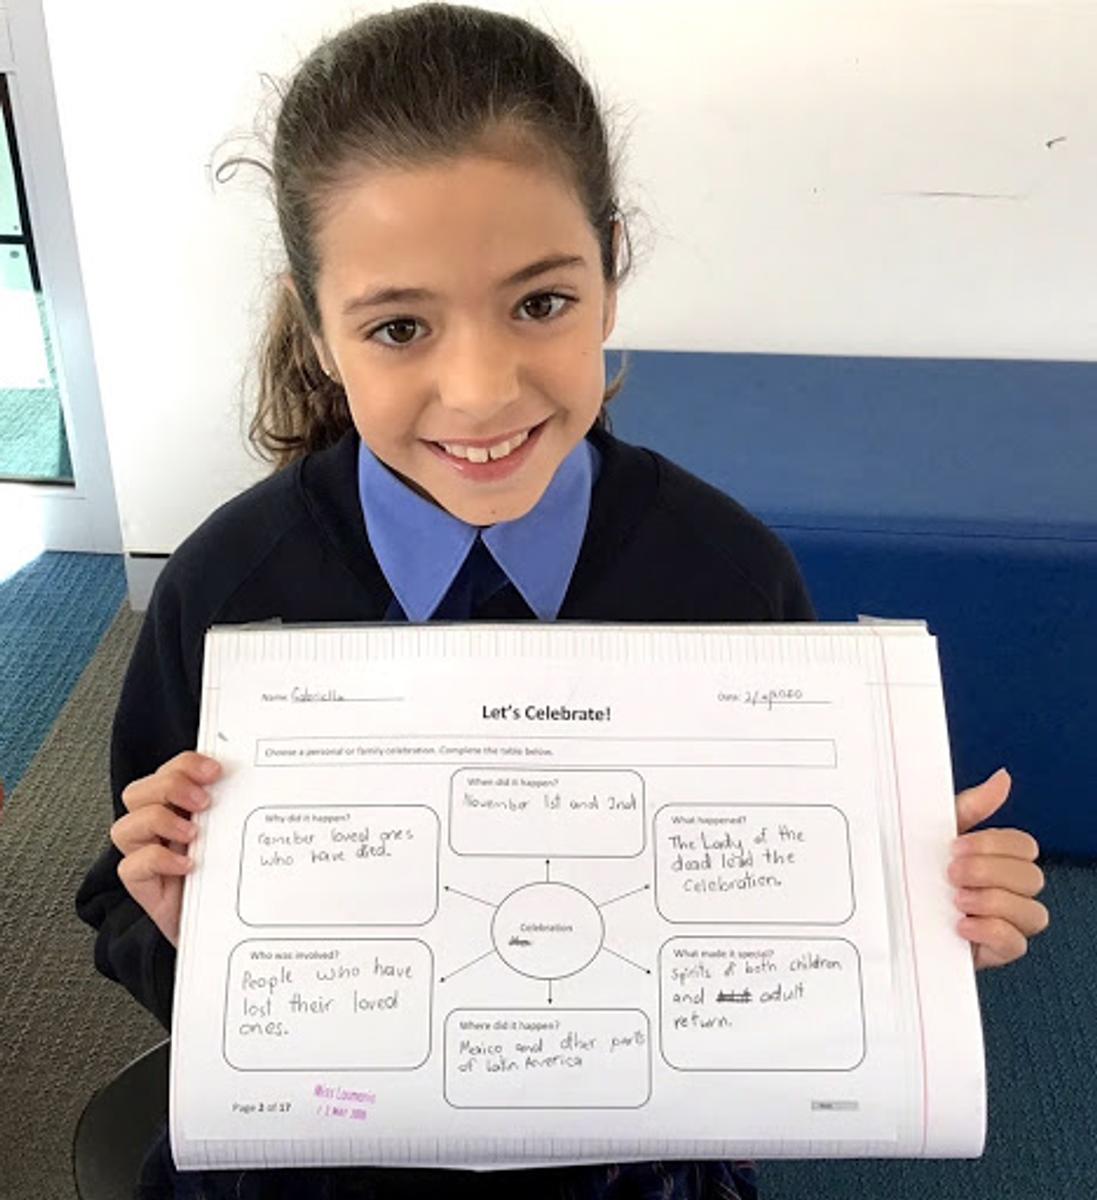 Name: Gabriella
Date:
Let's Celebrate!
Choose a personal or family celebration. Complete the table below.
When did it happen?
November 1st and 2nd
Why did it happen?
remeber loved ones
who have died.
What happened?
The Lady of the
dead lead the
celebration.
Celebration
Who was involved?
People who have
lost their loved
ones.
What made it special?
spirits of both children
and adult
return.
Where did it happen?
Mexico and other parts
of Latin America
Page 2 of 17
Miss